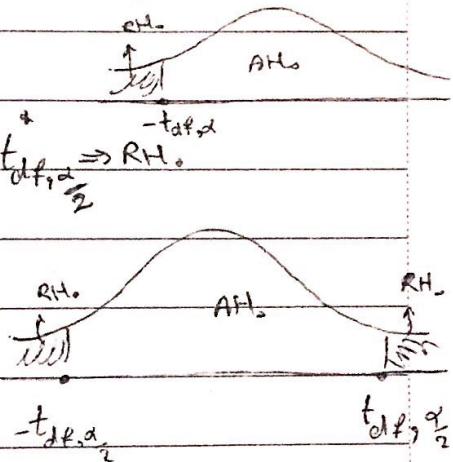 RH₀
AH₀
-t_df,α
t_df,α/2 ⇒ RH₀
RH₀ AH₀ RH₀
-t_df,α/2 t_df,α/2